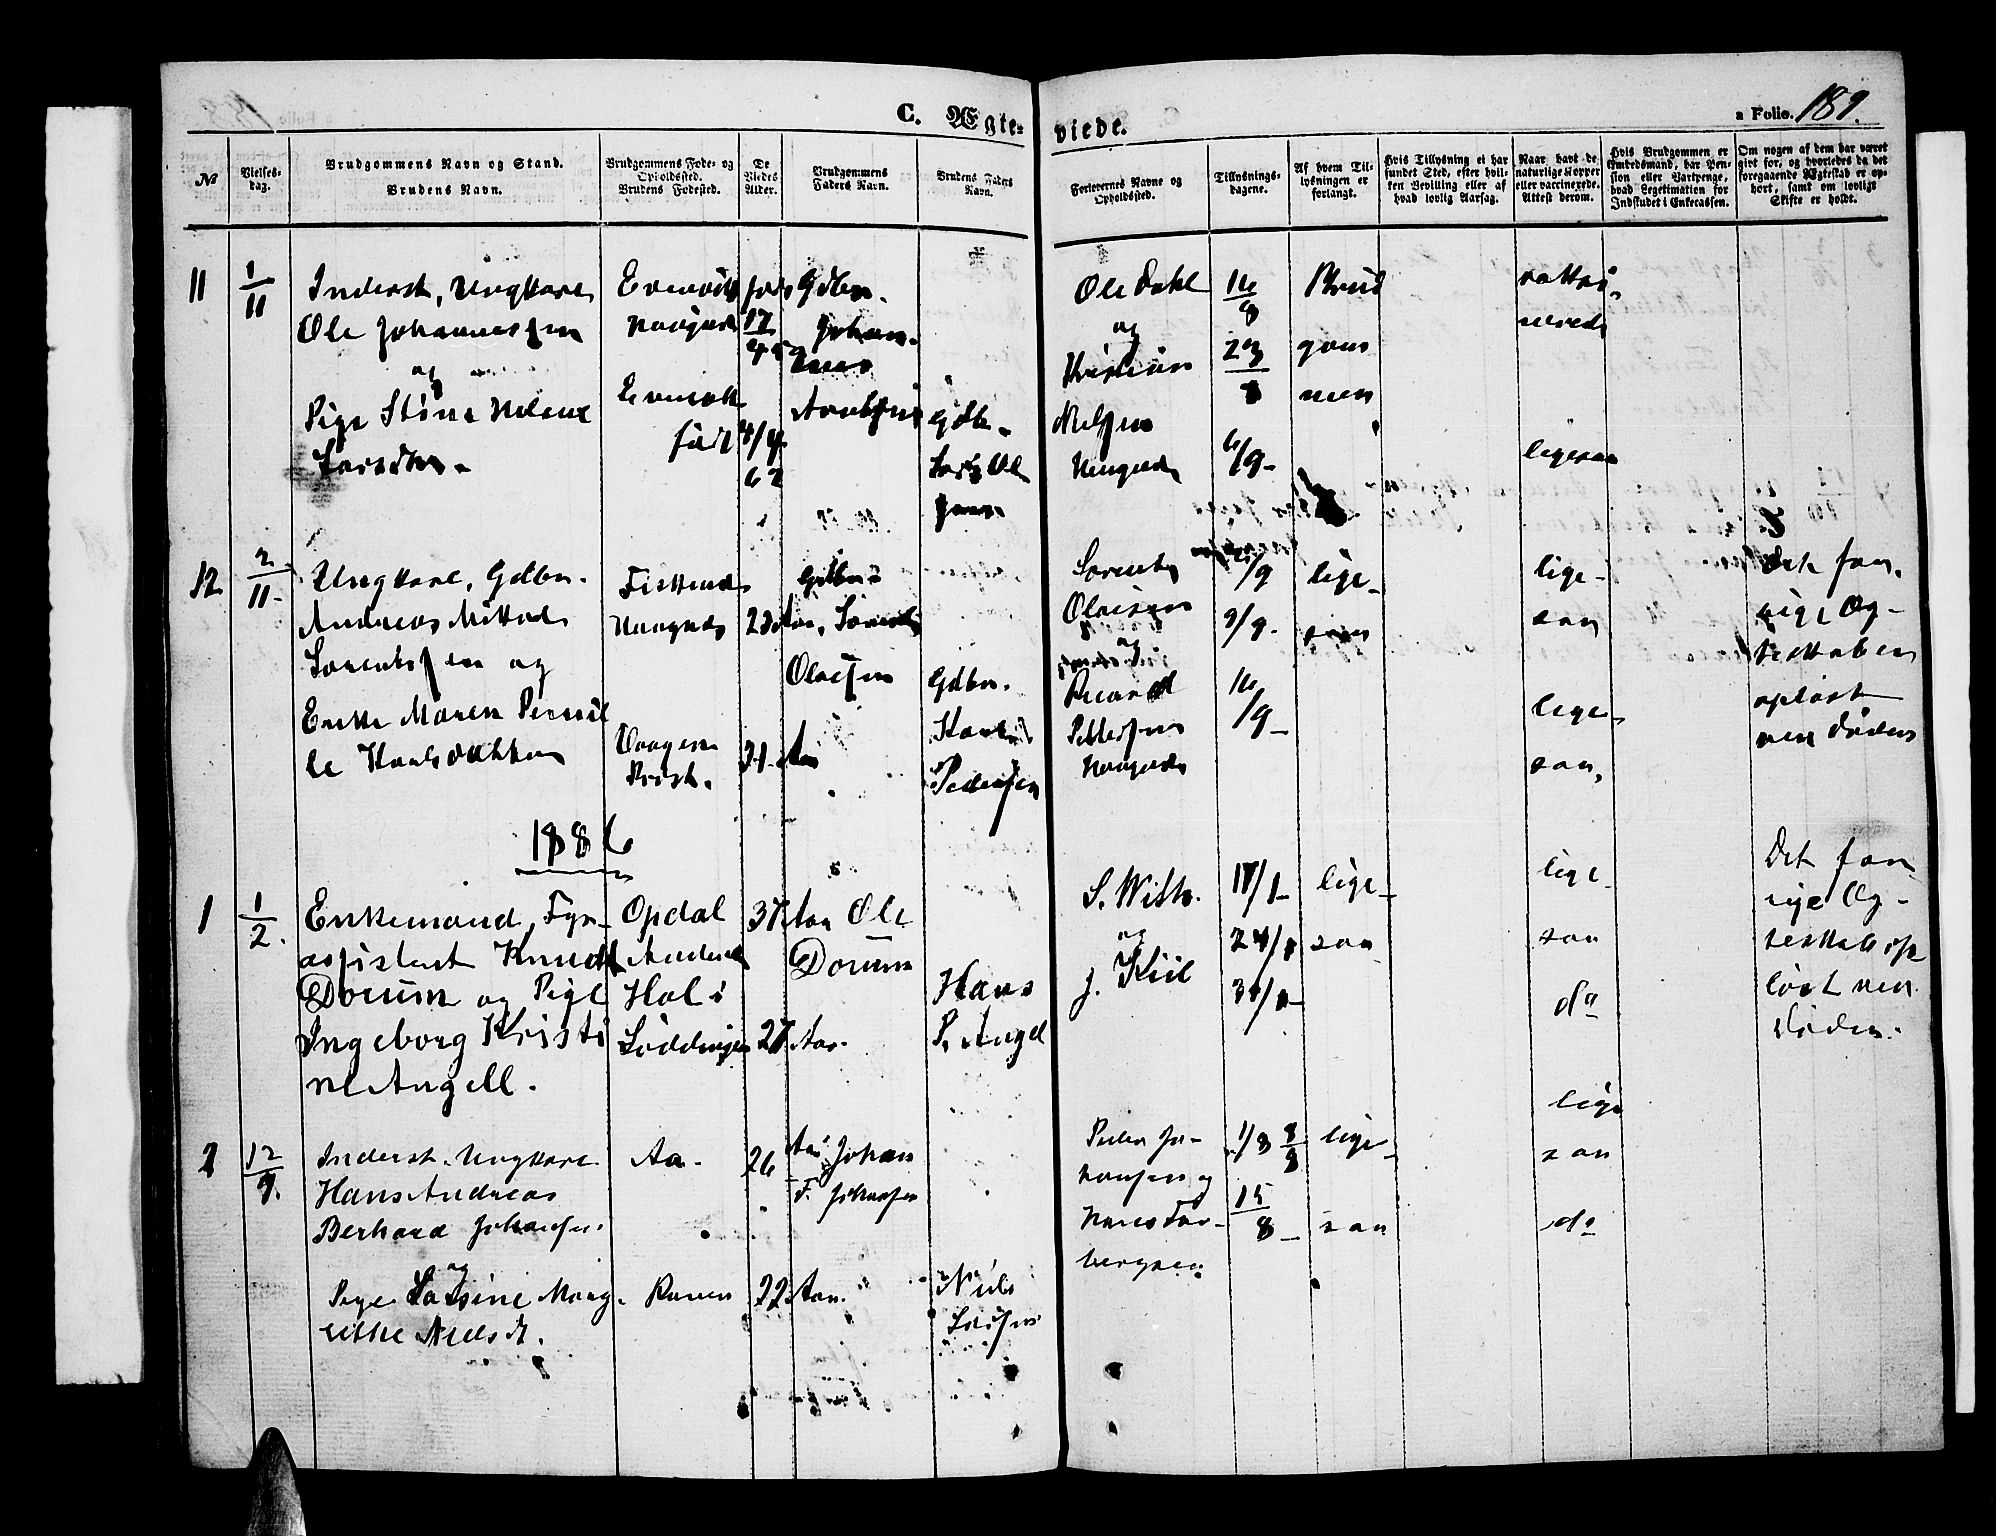 C. Ægte-
viede.
a Folio. 189.
№
Vielses-
dag.
Brudgommens Navn og Stand.
Brudens Navn.
Brudgommens Føde- og
Opholdssted.
Brudens Fødested.
De
Viedes
Alder.
Brudgommens
Faders Navn.
Brudens Faders
Navn.
Forlovernes Navne og
Opholdssted.
Tillysnings-
dagene.
Af hvem Til-
lysningen er
forlangt.
Hvis Tillysning ei har
fundet Sted, efter hvil-
ken Bevilling eller af
hvad lovlig Aarsag.
Naar havt de
naturlige Kopper
eller vaccinerede.
Attest derom.
Hvis Brudgommen er
Embedsmand, har Pen-
sion eller Vartpenge,
hvad Legitimation for
Indskudet i Enkecassen.
Om nogen af dem har været
gift før, og hvorledes da det
foregaaende Ægteskab er op-
hørt, samt om lovligt
Skifte er holdt.
11
1/11
Inderst, Ungkarl
Ole Johannessen
og
Pige Stina Helene
Larsdtr.
født
17
45
4/4
62
Gdbr.
Johan-
Gdbr.
Lars Ol
Ole Dahl
og
Kristian
Nielsen
16/8
23/8
6/9
Brud
gom
men
ligesaa
12
2/11
Ungkarl, Gdbr.
Andreas
Lorentssen og
Enke Maren Pernil
le
Vaagen
Gdbr.
Olaisen
Gdbr.
Pedersen
Lorents
Olaisen
og
Rikard
Pedersen
/9
9/9
16/9
lige-
saa
lige-
saa
lige-
saa,
Det for-
rige Æg-
teskaben
opløst
ved Døden
1886
1
1/2.
Enkemand, Fyr-
assistent Knudt
Dorum og Pige
Ingeborg Kristi
ne Angell.
Opdal
Hol i
Lødingen
37 Aar
27 Aar.
Ole
Dorum
Hans
P. Angel
S. With.
og
J. Kiil
17/1
24/1
31/1
lige-
saa
lige-
saa
do
Det for
rige Æg-
teskab op
løst ved
Døden.
2
12/9.
Inderst. Ungkarl
Hans Andreas
Berhard Johansen.
og
Pige Larsine Marg-
rethe Nielsdt.
Aa.
Ramen
26 Aar
22 Aar.
Johan
F. Johansen
Niels
Larsen
Peder Jo-
hansen og
Hans Tor-
bergsen
1/8 8/8
15/8
lige-
saa
lige
saa
do